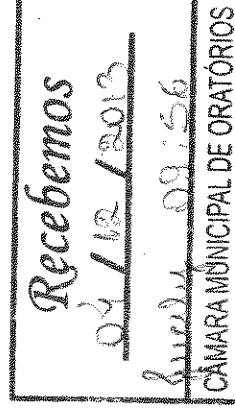 Recebemos
04 / 12 / 2013
09:56
CÂMARA MUNICIPAL DE ORATÓRIOS